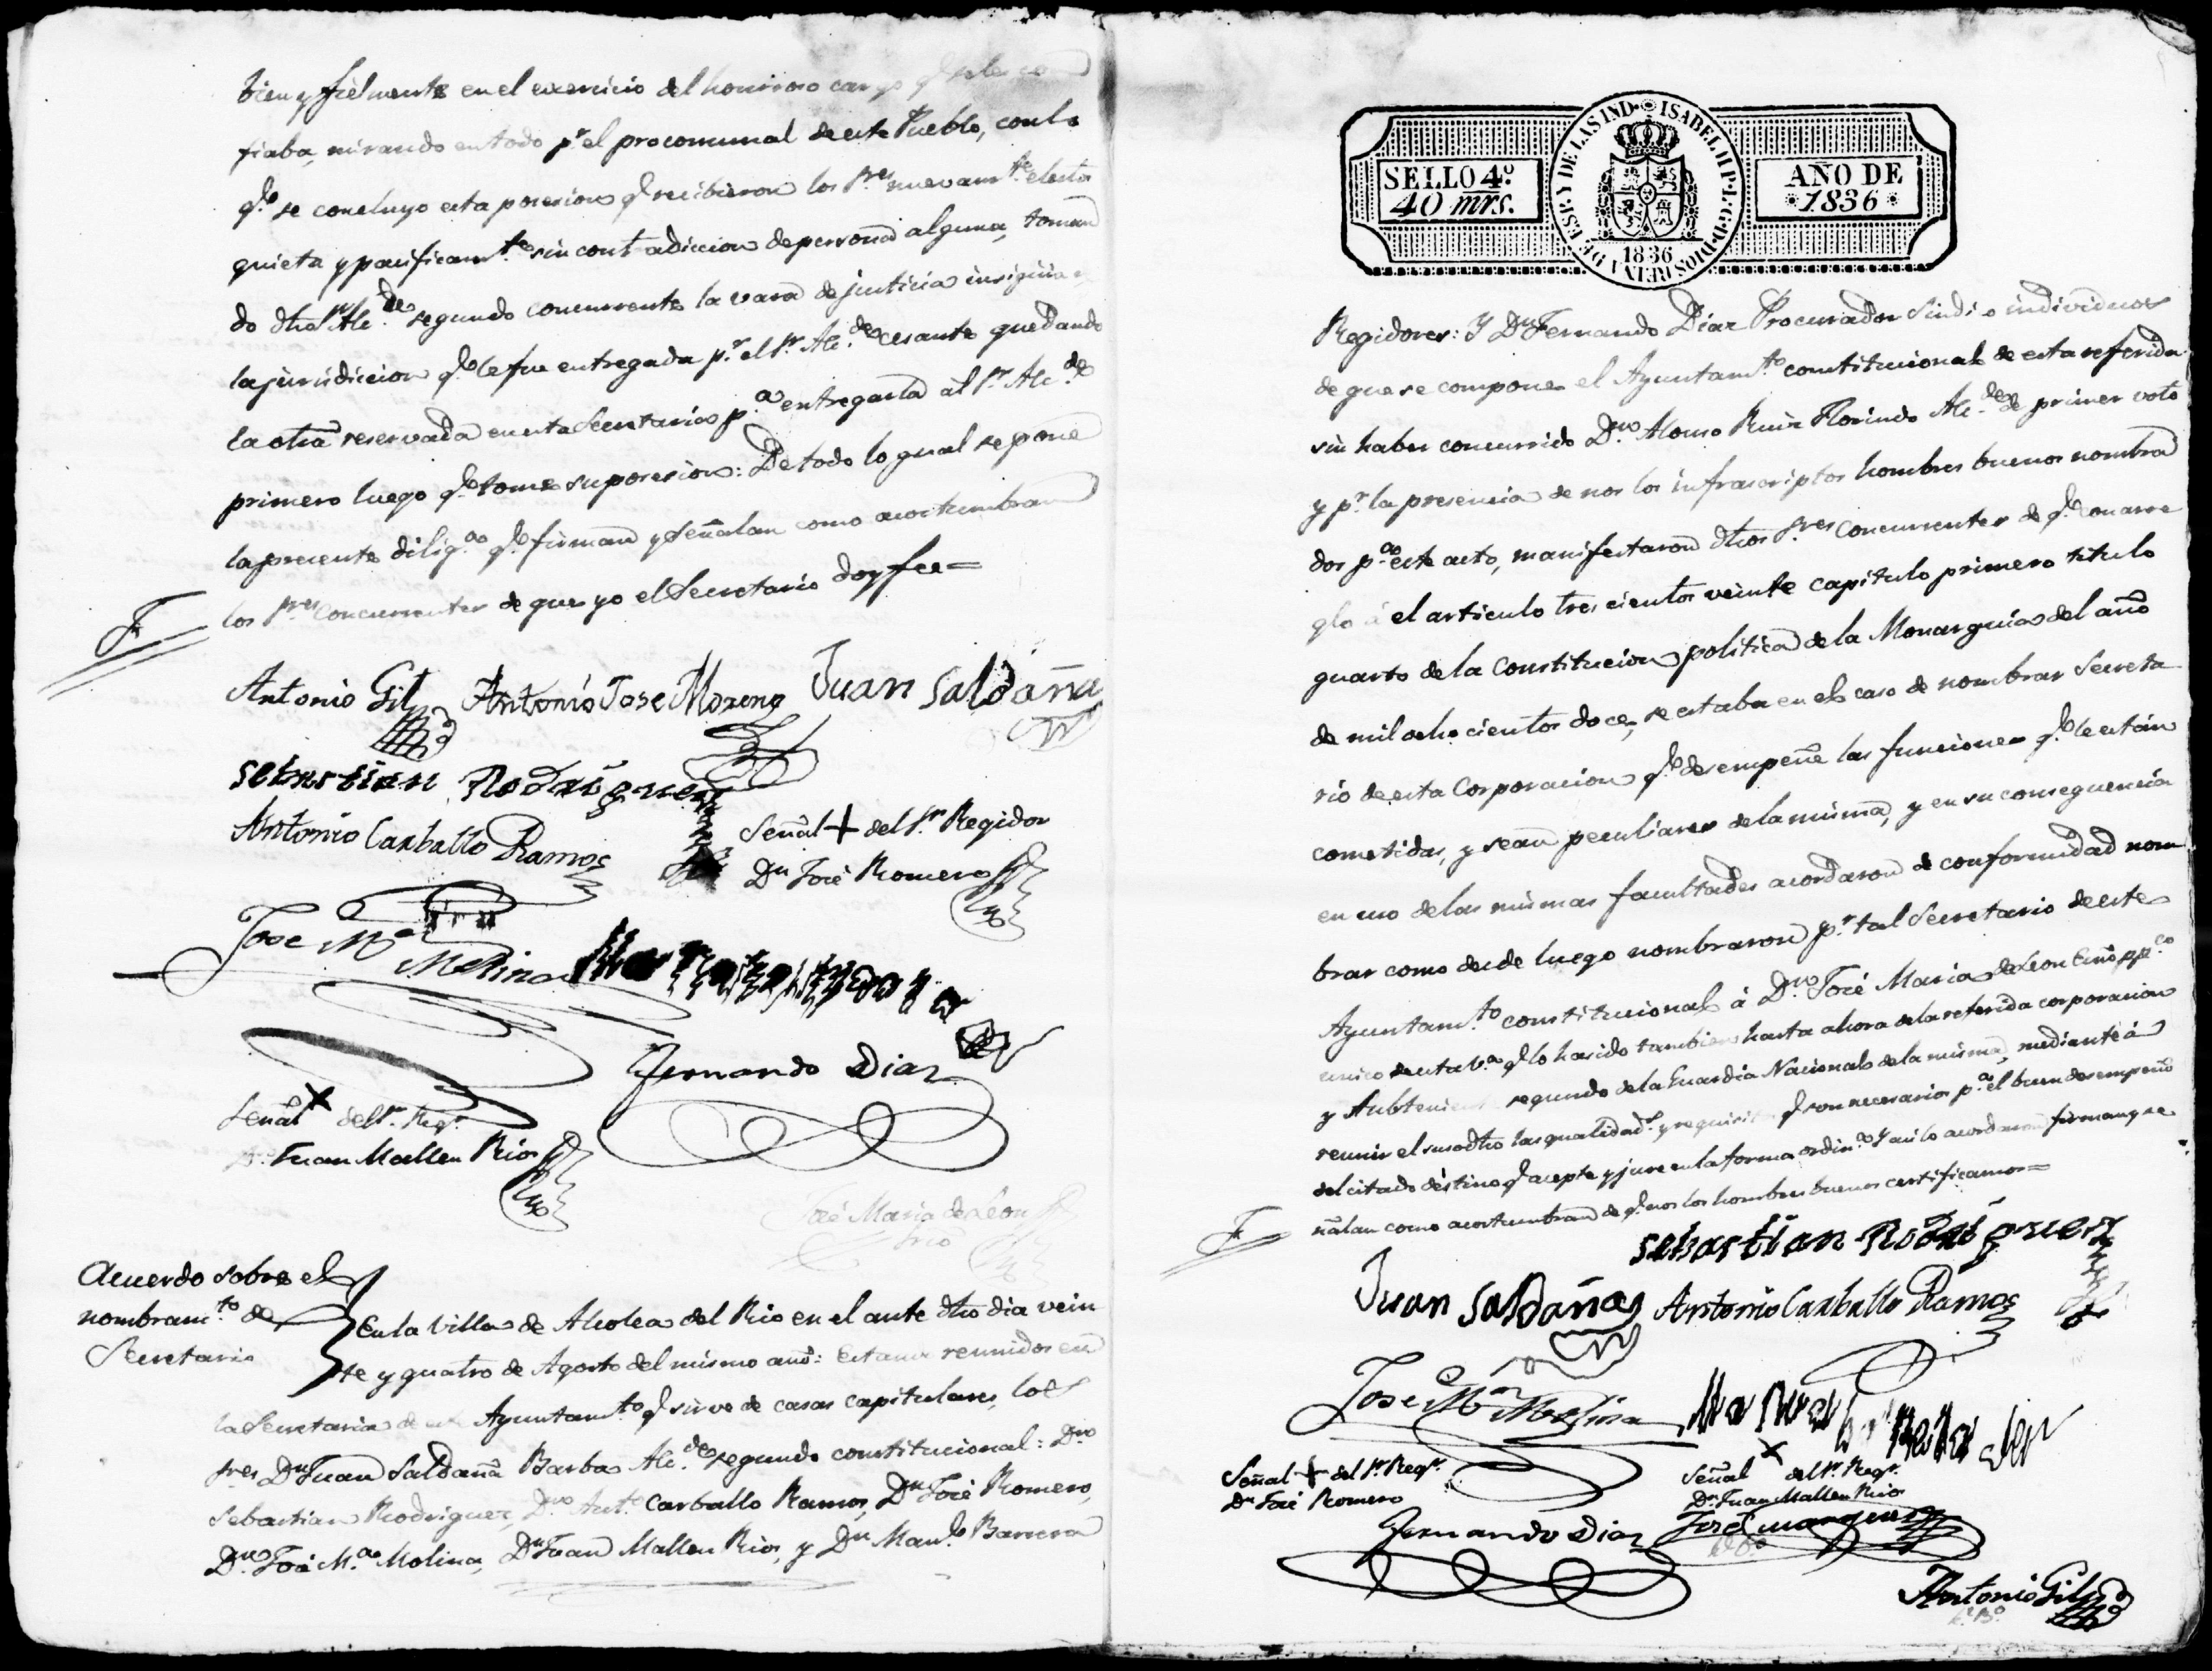 bien y fielmente en el exercicio del honrroso cargo q.e se les con
fiaba, mirando en todo p.r el procomunal de este Pueblo, con lo
q.e se concluyo esta posesion q.e recibieron los S.res nuevam.te electos
quieta y pacificam.te sin contradiccion de persona alguna, toman
do dho S.r Alc.de segundo concurrente la vara de justicia insignia
la jurisdiccion q.e le fue entregada p.r el S.r Alc.de cesante quedando
la otra reservada en esta Secretaria p.a entregarla al S.r Alc.de
primero luego q.e tome su posesion: De todo lo qual se pone
la presente dilig.a q.e firman y señalan como acostumbran
los S.res Concurrentes de que yo el Secretario doy fee=
Antonio Gil Antonio Jose Moreno Juan Saldaña
Sebastian Rodriguez
Antonio Carballo Ramos
Señal + del S.r Regidor
Dn José Romero
Jose M.a Molina
Fernando Diaz
Señal x del S.r Reg.r
D.n Juan Mallen Rios
José Maria de Leon
Srio
Acuerdo sobre el
nombram.to de
Secretario
En la Villa de Alcolea del Rio en el ante dho dia vein
te y quatro de Agosto del mismo año: Estando reunidos en
la Secretaria de este Ayuntam.to q.e sirve de casas capitulares, los
S.res Dn Juan Saldaña Barba Alc.de segundo constitucional: D.n
Sebastian Rodriguez, D.n Ant.o Carballo Ramos, Dn José Romero,
D.n José M.a Molina, Dn Juan Mallen Rios, y Dn Man.l Barrera
SELLO 4.º
40 mrs.
ISABEL II P. L. G. D. DIOS REINA DE ESP. Y DE LAS IND.
1836
AÑO DE
1836
Regidores: Y Dn Fernando Diaz Procurador Sindico individuos
de que se compone el Ayuntam.to constitucional de esta referida
sin haber concurrido D.n Alonso Ruiz Florindo Alc.de de primer voto
y p.r la presencia de nos los infrascriptos hombres buenos nombra
dos p.a este acto, manifestaron dhos S.res Concurrentes de q.e con arre
glo à el articulo tres cientos veinte capitulo primero titulo
quarto de la Constitucion politica de la Monarquia del año
de mil ocho cientos doce, se estaba en el caso de nombrar Secreta
rio de esta Corporacion q.e desempeñe las funciones q.e le están
cometidas, y sean peculiares de la misma, y en su consequencia
en uso de las mismas facultades acordaron de conformidad nom
brar como desde luego nombraron p.r tal Secretario de este
Ayuntam.to constitucional à D.n José Maria de Leon Esno pp.co
unico de esta V.a q.e lo ha sido tambien hasta ahora de la referida corporacion
y Subteniente segundo de la Guardia Nacional de la misma, mediante à
reunir el susodho las qualidad.s y requisitos q.e son necesarios p.a el buen desempeño
del citado destino q.e acepte y jure en la forma ordin.a Y asi lo acordaron firman y se
ñalan como acostumbran de q.e nos los hombres buenos certificamos=
Sebastian Rodriguez
Juan Saldaña Antonio Carballo Ramos
Jose M.a Molina
Señal + del S.r Reg.r
Dn José Romero
Señal x del S.r Reg.r
Dn Juan Mallen Rios
Fernando Diaz
José Marquez
Antonio Gil